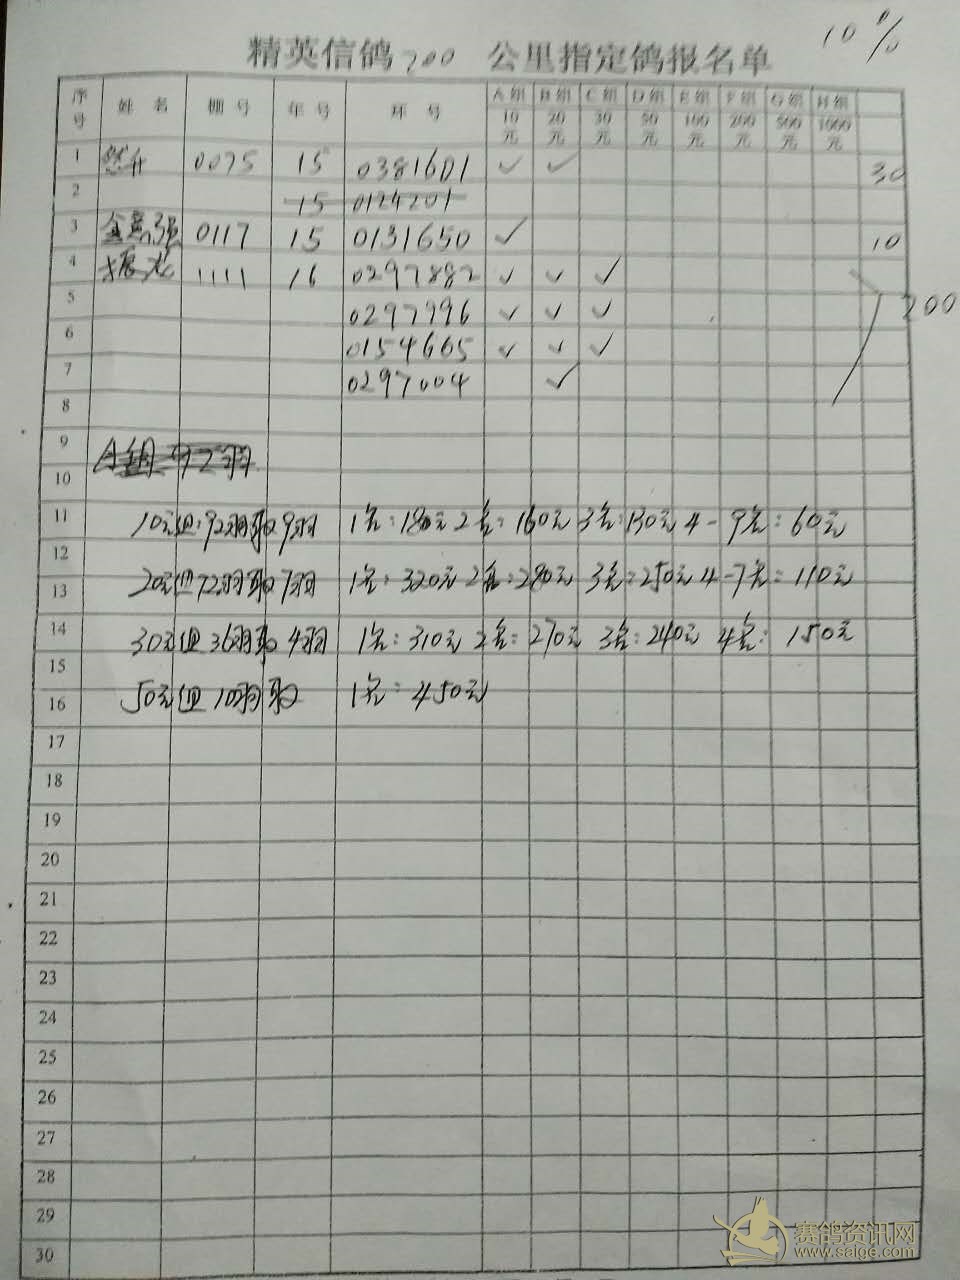 10%
精英信鸽700 公里指定鸽报名单
序号 姓 名 棚 号 年 号 环 号 A组 B组 C组 D组 E组 F组 G组 H组
10元 20元 30元 50元 100元 200元 500元 1000元
1 0075 15 0381601 ✓ ✓ 30
2 15 0124201
3 金意强 0117 15 0131650 ✓ 10
4 振龙 1111 16 0297882 ✓ ✓ ✓
5 0297996 ✓ ✓ ✓ 200
6 0154665 ✓ ✓ ✓
7 0297004 ✓
8
9 A组 92羽
10
11 10元组:92羽取9羽 1名:180元 2名:160元 3名:130元 4-9名:60元
12
13 20元组72羽取7羽 1名:320元 2名:280元 3名:250元 4-7名:110元
14 30元组36羽取4羽 1名:310元 2名:270元 3名:240元 4名:150元
15
16 50元组10羽取 1名:450元
17
18
19
20
21
22
23
24
25
26
27
28
29
30
赛鸽资讯网
www.saige.com